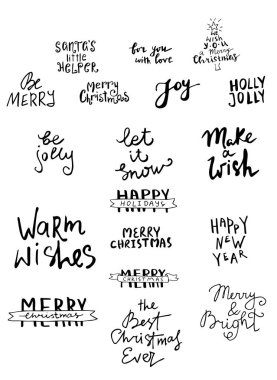 Santa's
little
HELPER
for you
with love
We
wish
you
a Merry
Christmas
Be
MERRY
Merry
Christmas
Joy
HOLLY
JOLLY
be
jolly
let
it
snow
Make
a
wish
HAPPY
HOLIDAYS
Warm
wishes
MERRY
CHRISTMAS
HAPPY
NEW
YEAR
MERRY
CHRISTMAS
MERRY
christmas
the
Best
Christmas
Ever
Merry
&
Bright